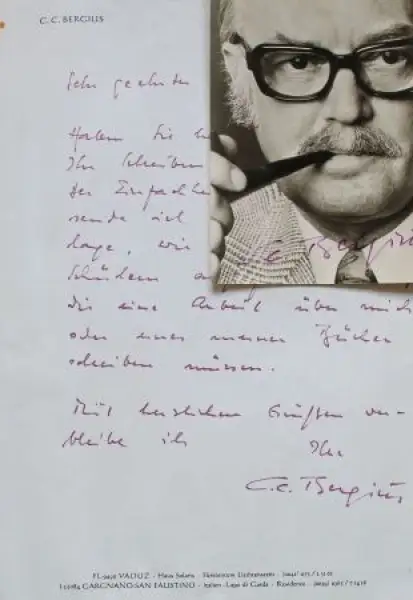 C. C. BERGIUS
Sehr geehrter
Haben Sie h
Ihr Schreiben
Der Einfachhe
sende ich
lage, wie
Schülern
die eine Arbeit über mich
oder eines meiner Bücher
schreiben müssen.
Mit herzlichen Grüßen ver-
bleibe ich Ihr
C.C. Bergius
C Bergius
VADUZ - Haus Solaris - Fürstentum Liechtenstein
GARGNANO-SAN FAUSTINO - Italien - Lago di Garda - Residenza